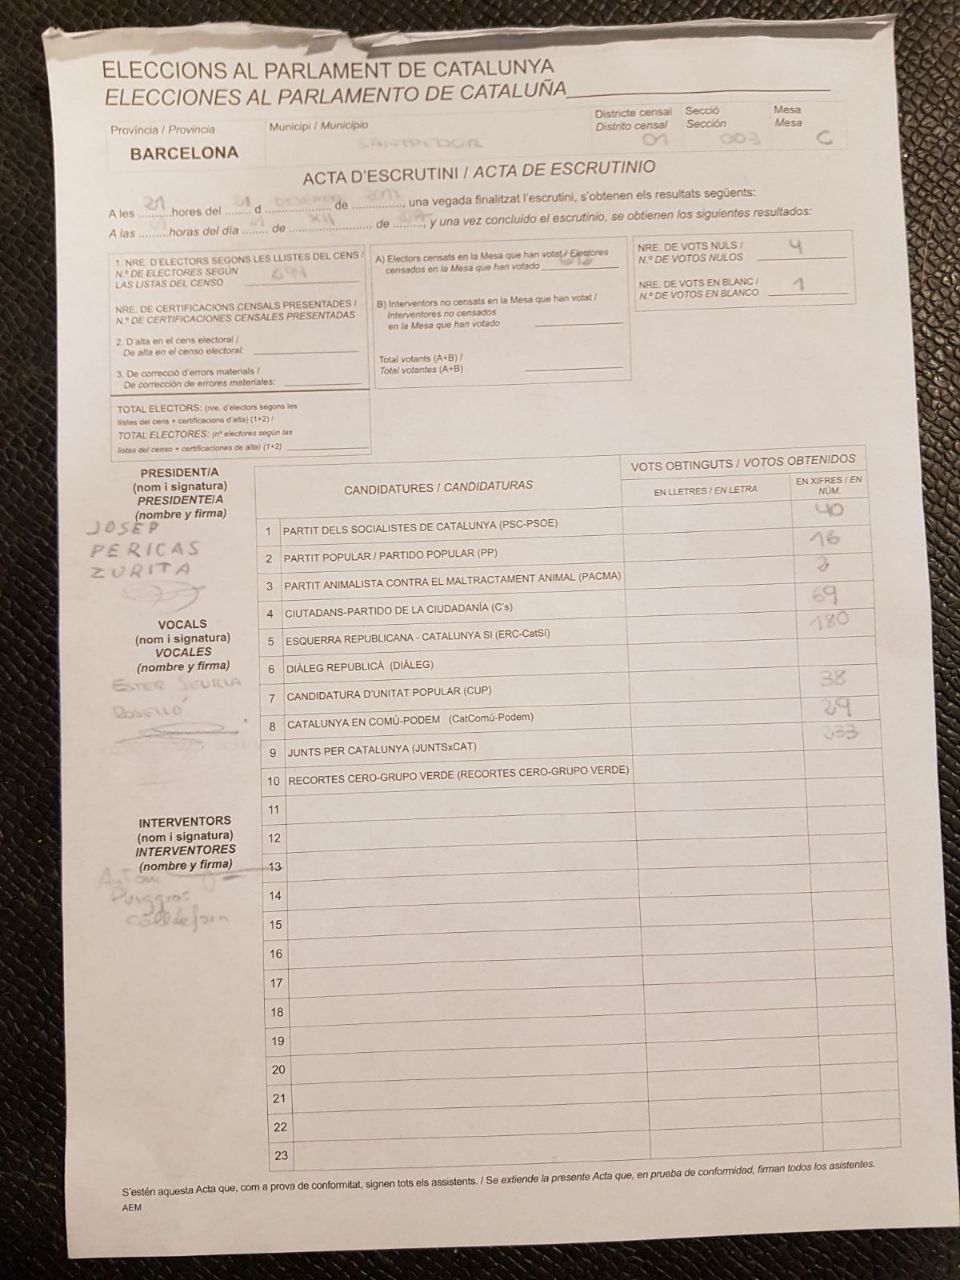 ELECCIONS AL PARLAMENT DE CATALUNYA
ELECCIONES AL PARLAMENTO DE CATALUÑA
Provincia / Provincia
BARCELONA
Municipi / Municipio
SANTPEDOR
Districte censal
Distrito censal
01
Secció
Sección
003
Mesa
Mesa
C
ACTA D'ESCRUTINI / ACTA DE ESCRUTINIO
A les 21 hores del 21 d desembre de 2017, una vegada finalitzat l'escrutini, s'obtenen els resultats següents:
A las ..........horas del día ....... de XII de ........, y una vez concluido el escrutinio, se obtienen los siguientes resultados:
1. NRE. D'ELECTORS SEGONS LES LLISTES DEL CENS /
N.º DE ELECTORES SEGÚN
LAS LISTAS DEL CENSO
NRE. DE CERTIFICACIONS CENSALS PRESENTADES /
N.º DE CERTIFICACIONES CENSALES PRESENTADAS
2. D'alta en el cens electoral /
De alta en el censo electoral:
3. De correcció d'errors materials /
De corrección de errores materiales:
TOTAL ELECTORS: (nre. d'electors segons les
llistes del cens + certificacions d'alta) (1+2) /
TOTAL ELECTORES: (nº electores según las
listas del censo + certificaciones de alta) (1+2)
A) Electors censats en la Mesa que han votat / Electores
censados en la Mesa que han votado
B) Interventors no censats en la Mesa que han votat /
Interventores no censados
en la Mesa que han votado
Total votants (A+B) /
Total votantes (A+B)
NRE. DE VOTS NULS /
N.º DE VOTOS NULOS 4
NRE. DE VOTS EN BLANC /
N.º DE VOTOS EN BLANCO 1
PRESIDENT/A
(nom i signatura)
PRESIDENTE/A
(nombre y firma)
JOSEP
PERICAS
ZURITA
VOCALS
(nom i signatura)
VOCALES
(nombre y firma)
ESTER SEVILLA
ROSELLÓ
INTERVENTORS
(nom i signatura)
INTERVENTORES
(nombre y firma)
Puiggròs
CANDIDATURES / CANDIDATURAS
VOTS OBTINGUTS / VOTOS OBTENIDOS
EN LLETRES / EN LETRA
EN XIFRES / EN
NÚM.
1 PARTIT DELS SOCIALISTES DE CATALUNYA (PSC-PSOE) 40
2 PARTIT POPULAR / PARTIDO POPULAR (PP) 16
3 PARTIT ANIMALISTA CONTRA EL MALTRACTAMENT ANIMAL (PACMA)
4 CIUTADANS-PARTIDO DE LA CIUDADANÍA (C's) 69
5 ESQUERRA REPUBLICANA - CATALUNYA SI (ERC-CatSí) 180
6 DIÀLEG REPUBLICÀ (DIÀLEG)
7 CANDIDATURA D'UNITAT POPULAR (CUP) 38
8 CATALUNYA EN COMÚ-PODEM (CatComú-Podem) 29
9 JUNTS PER CATALUNYA (JUNTSxCAT) 233
10 RECORTES CERO-GRUPO VERDE (RECORTES CERO-GRUPO VERDE)
11
12
13
14
15
16
17
18
19
20
21
22
23
S'estén aquesta Acta que, com a prova de conformitat, signen tots els assistents. / Se extiende la presente Acta que, en prueba de conformidad, firman todos los asistentes.
AEM